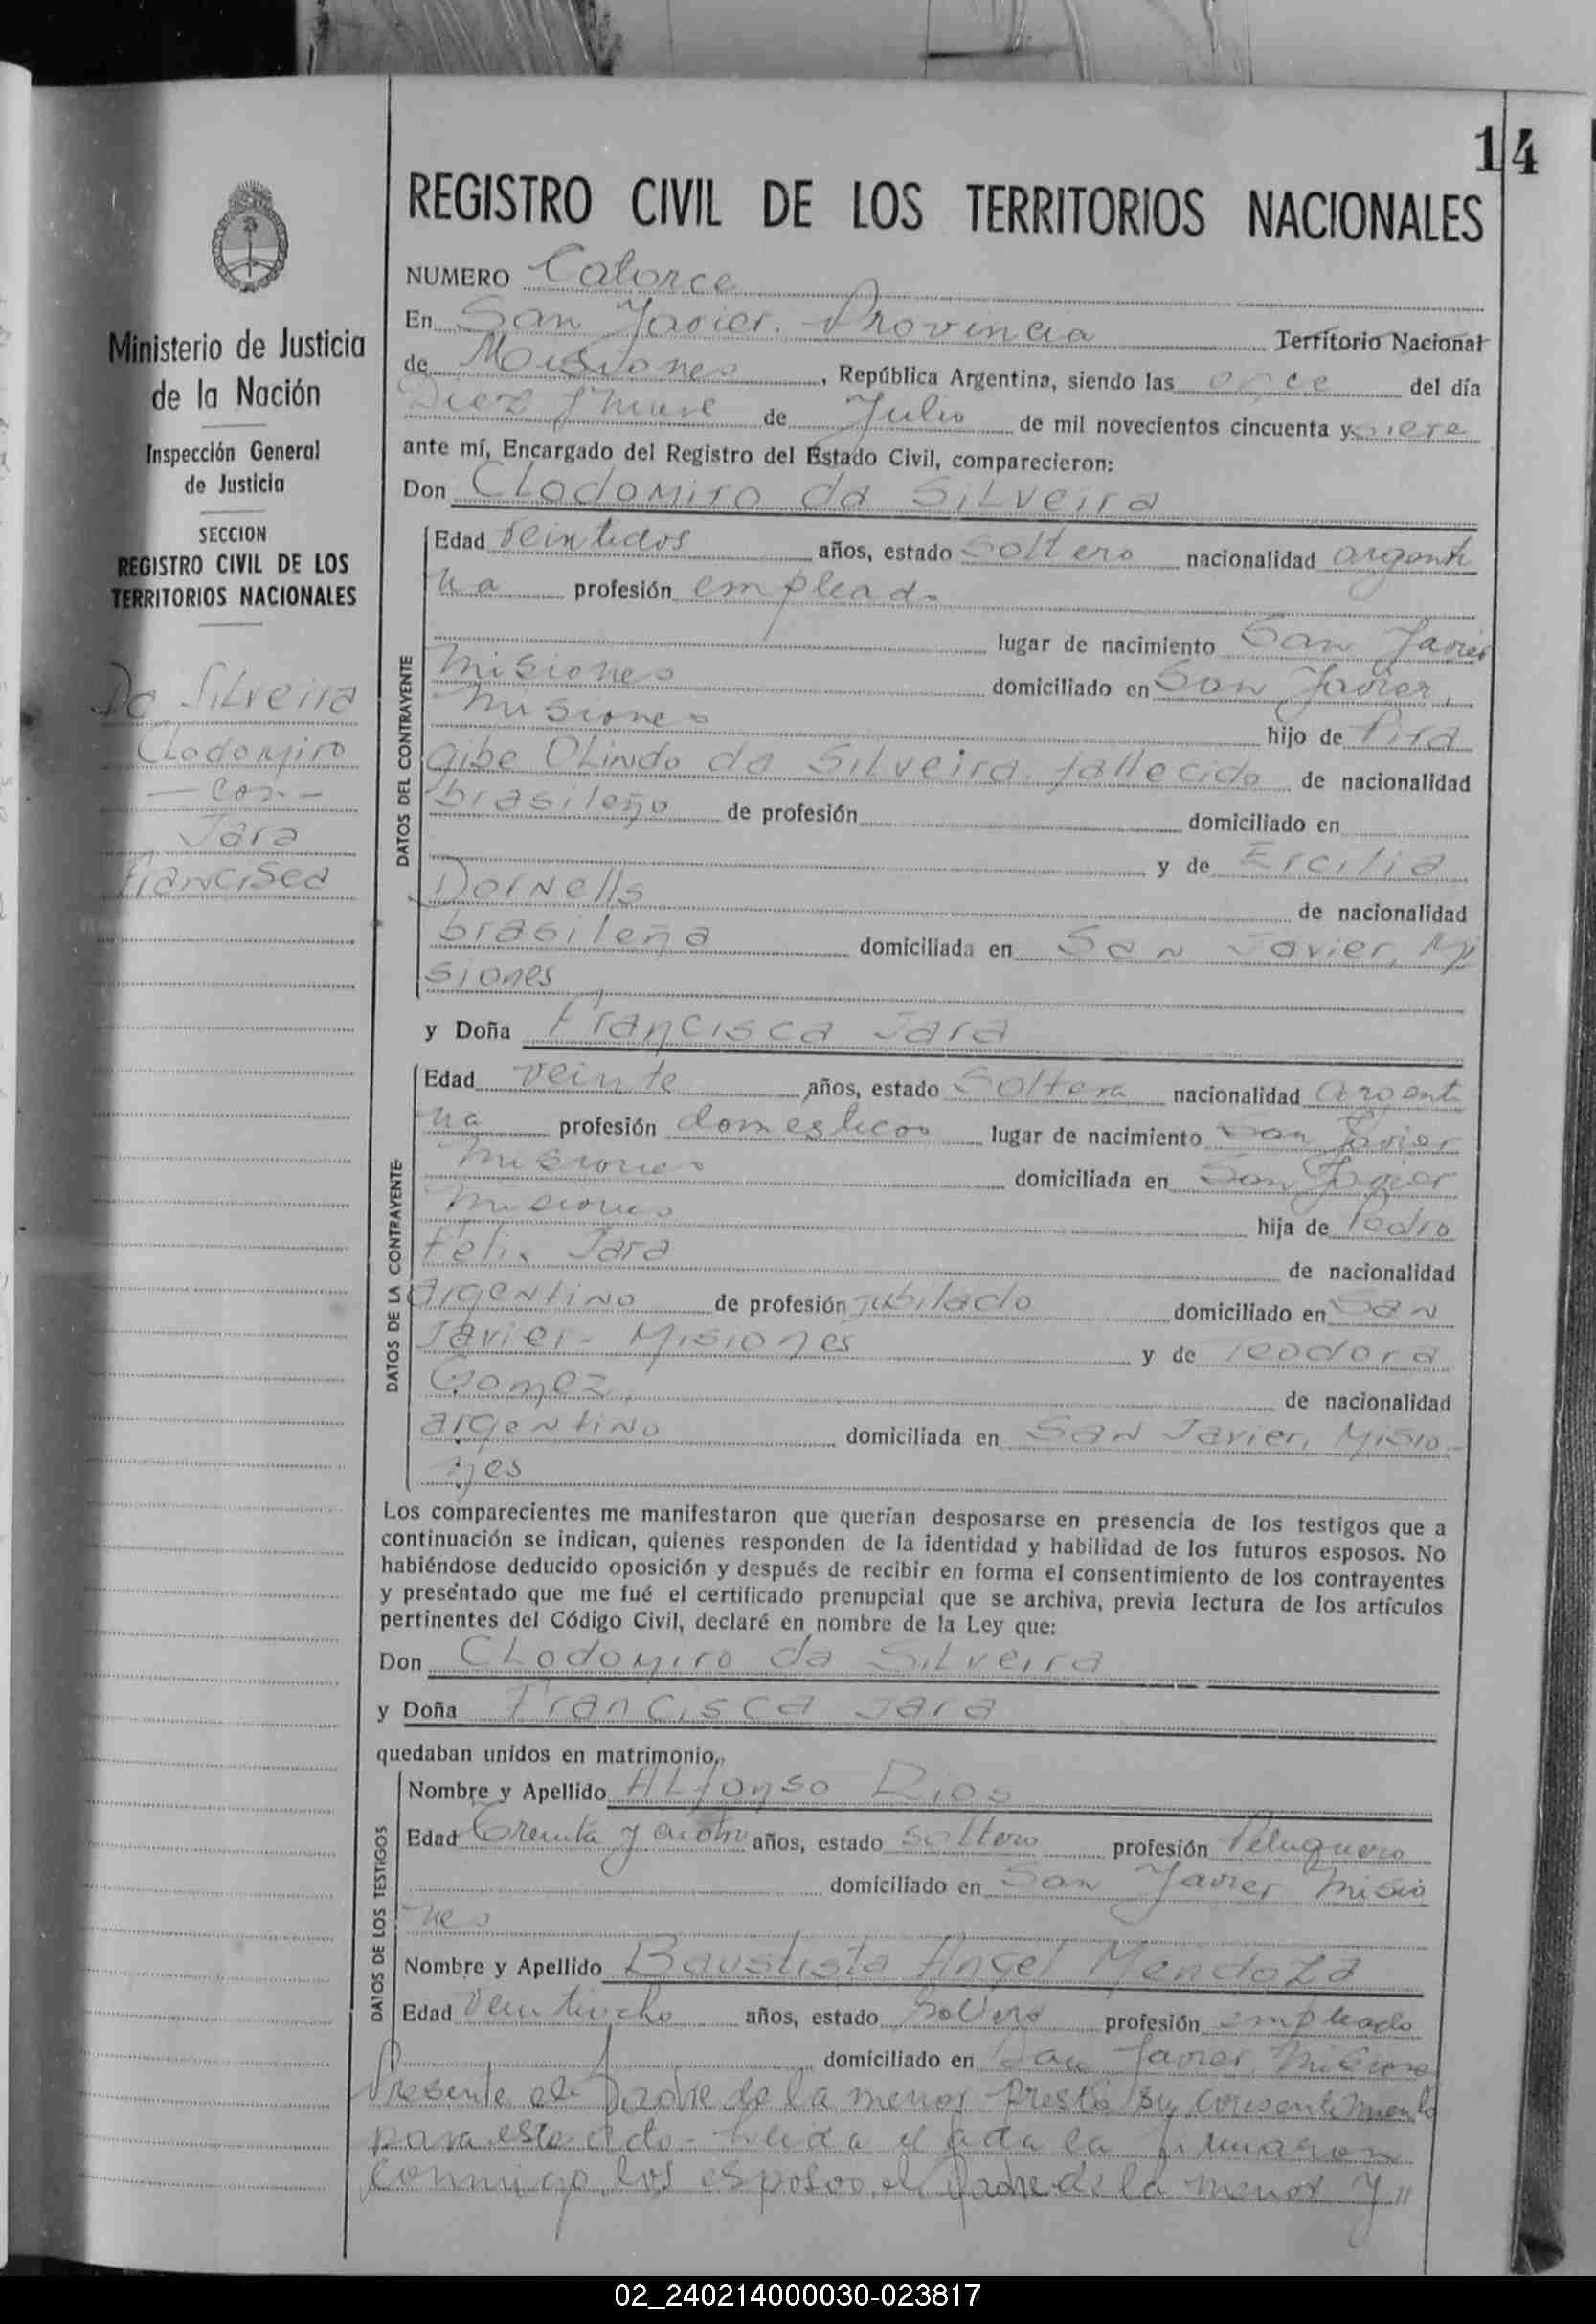 14
REGISTRO CIVIL DE LOS TERRITORIOS NACIONALES
Ministerio de Justicia
de la Nación
Inspección General
de Justicia
SECCION
REGISTRO CIVIL DE LOS
TERRITORIOS NACIONALES
Da Silveira
Clodomiro
— con —
Jara
Francisca
NUMERO Catorce
En San Javier. Provincia Territorio Nacional
de Misiones, República Argentina, siendo las once del día
Diez y nueve de Julio de mil novecientos cincuenta y siete
ante mí, Encargado del Registro del Estado Civil, comparecieron:
Don Clodomiro da Silveira
DATOS DEL CONTRAYENTE
Edad Veintidos años, estado soltero nacionalidad argenti
na profesión empleado
lugar de nacimiento San Javier
Misiones domiciliado en San Javier,
Misiones hijo de Pira
gibe Olindo da Silveira, fallecido de nacionalidad
brasileño de profesión domiciliado en
y de Ercilia
Dornells de nacionalidad
brasileña domiciliada en San Javier, Mi
siones
y Doña Francisca Jara
DATOS DE LA CONTRAYENTE
Edad Veinte años, estado Soltera nacionalidad argenti
na profesión domesticos lugar de nacimiento San Javier
Misiones domiciliada en San Javier
Misiones hija de Pedro
Felix Jara de nacionalidad
argentino de profesión jubilado domiciliado en San
Javier - Misiones y de Teodora
Gomez, de nacionalidad
argentino domiciliada en San Javier, Misio-
nes
Los comparecientes me manifestaron que querían desposarse en presencia de los testigos que a
continuación se indican, quienes responden de la identidad y habilidad de los futuros esposos. No
habiéndose deducido oposición y después de recibir en forma el consentimiento de los contrayentes
y presentado que me fué el certificado prenupcial que se archiva, previa lectura de los artículos
pertinentes del Código Civil, declaré en nombre de la Ley que:
Don Clodomiro da Silveira
y Doña Francisca Jara
quedaban unidos en matrimonio,
DATOS DE LOS TESTIGOS
Nombre y Apellido Alfonso Rios
Edad Treinta y cuatro años, estado soltero profesión Peluquero
domiciliado en San Javier Misio
nes
Nombre y Apellido Baustista Angel Mendoza
Edad Veintiocho años, estado Soltero profesión empleado
domiciliado en San Javier, Misiones
Presente el Padre de la menor presta su consentimiento
para este acto - Leida el acta la firmaron
conmigo los esposos, el Padre de la menor y "
02_240214000030-023817